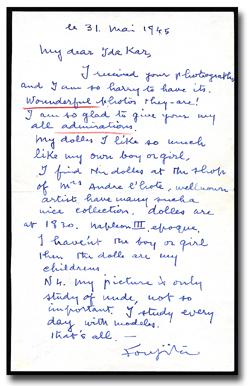 le 31. Mai 1945
My dear Ida Kar,
I received your photographs
and I am so harry to have its.
Wounderful photos they are!
I am so glad to give your my
all admirations.
My dolls I like so much
like my own boy or girl,
I find this dolles at the shop
of Mrs Andre l'hote, wellknown
artist have many such a
nice collection. dolles are
at 1820. Napleon III, epoque,
I haven't the boy or girl
then the dolls are my
childrens.
N4. My picture is only
study of nude, not so
important. I study every
day with modeles.
that's all. —
Foujita